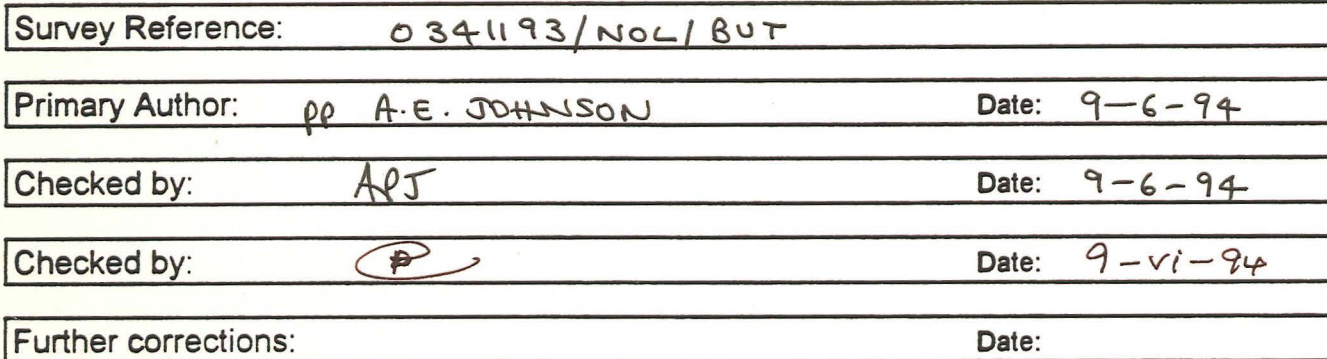 Survey Reference: 0341193/NOL/BUT
Primary Author: pp A.E. JOHNSON Date: 9-6-94
Checked by: APJ Date: 9-6-94
Checked by: Date: 9-vi-94
Further corrections: Date: